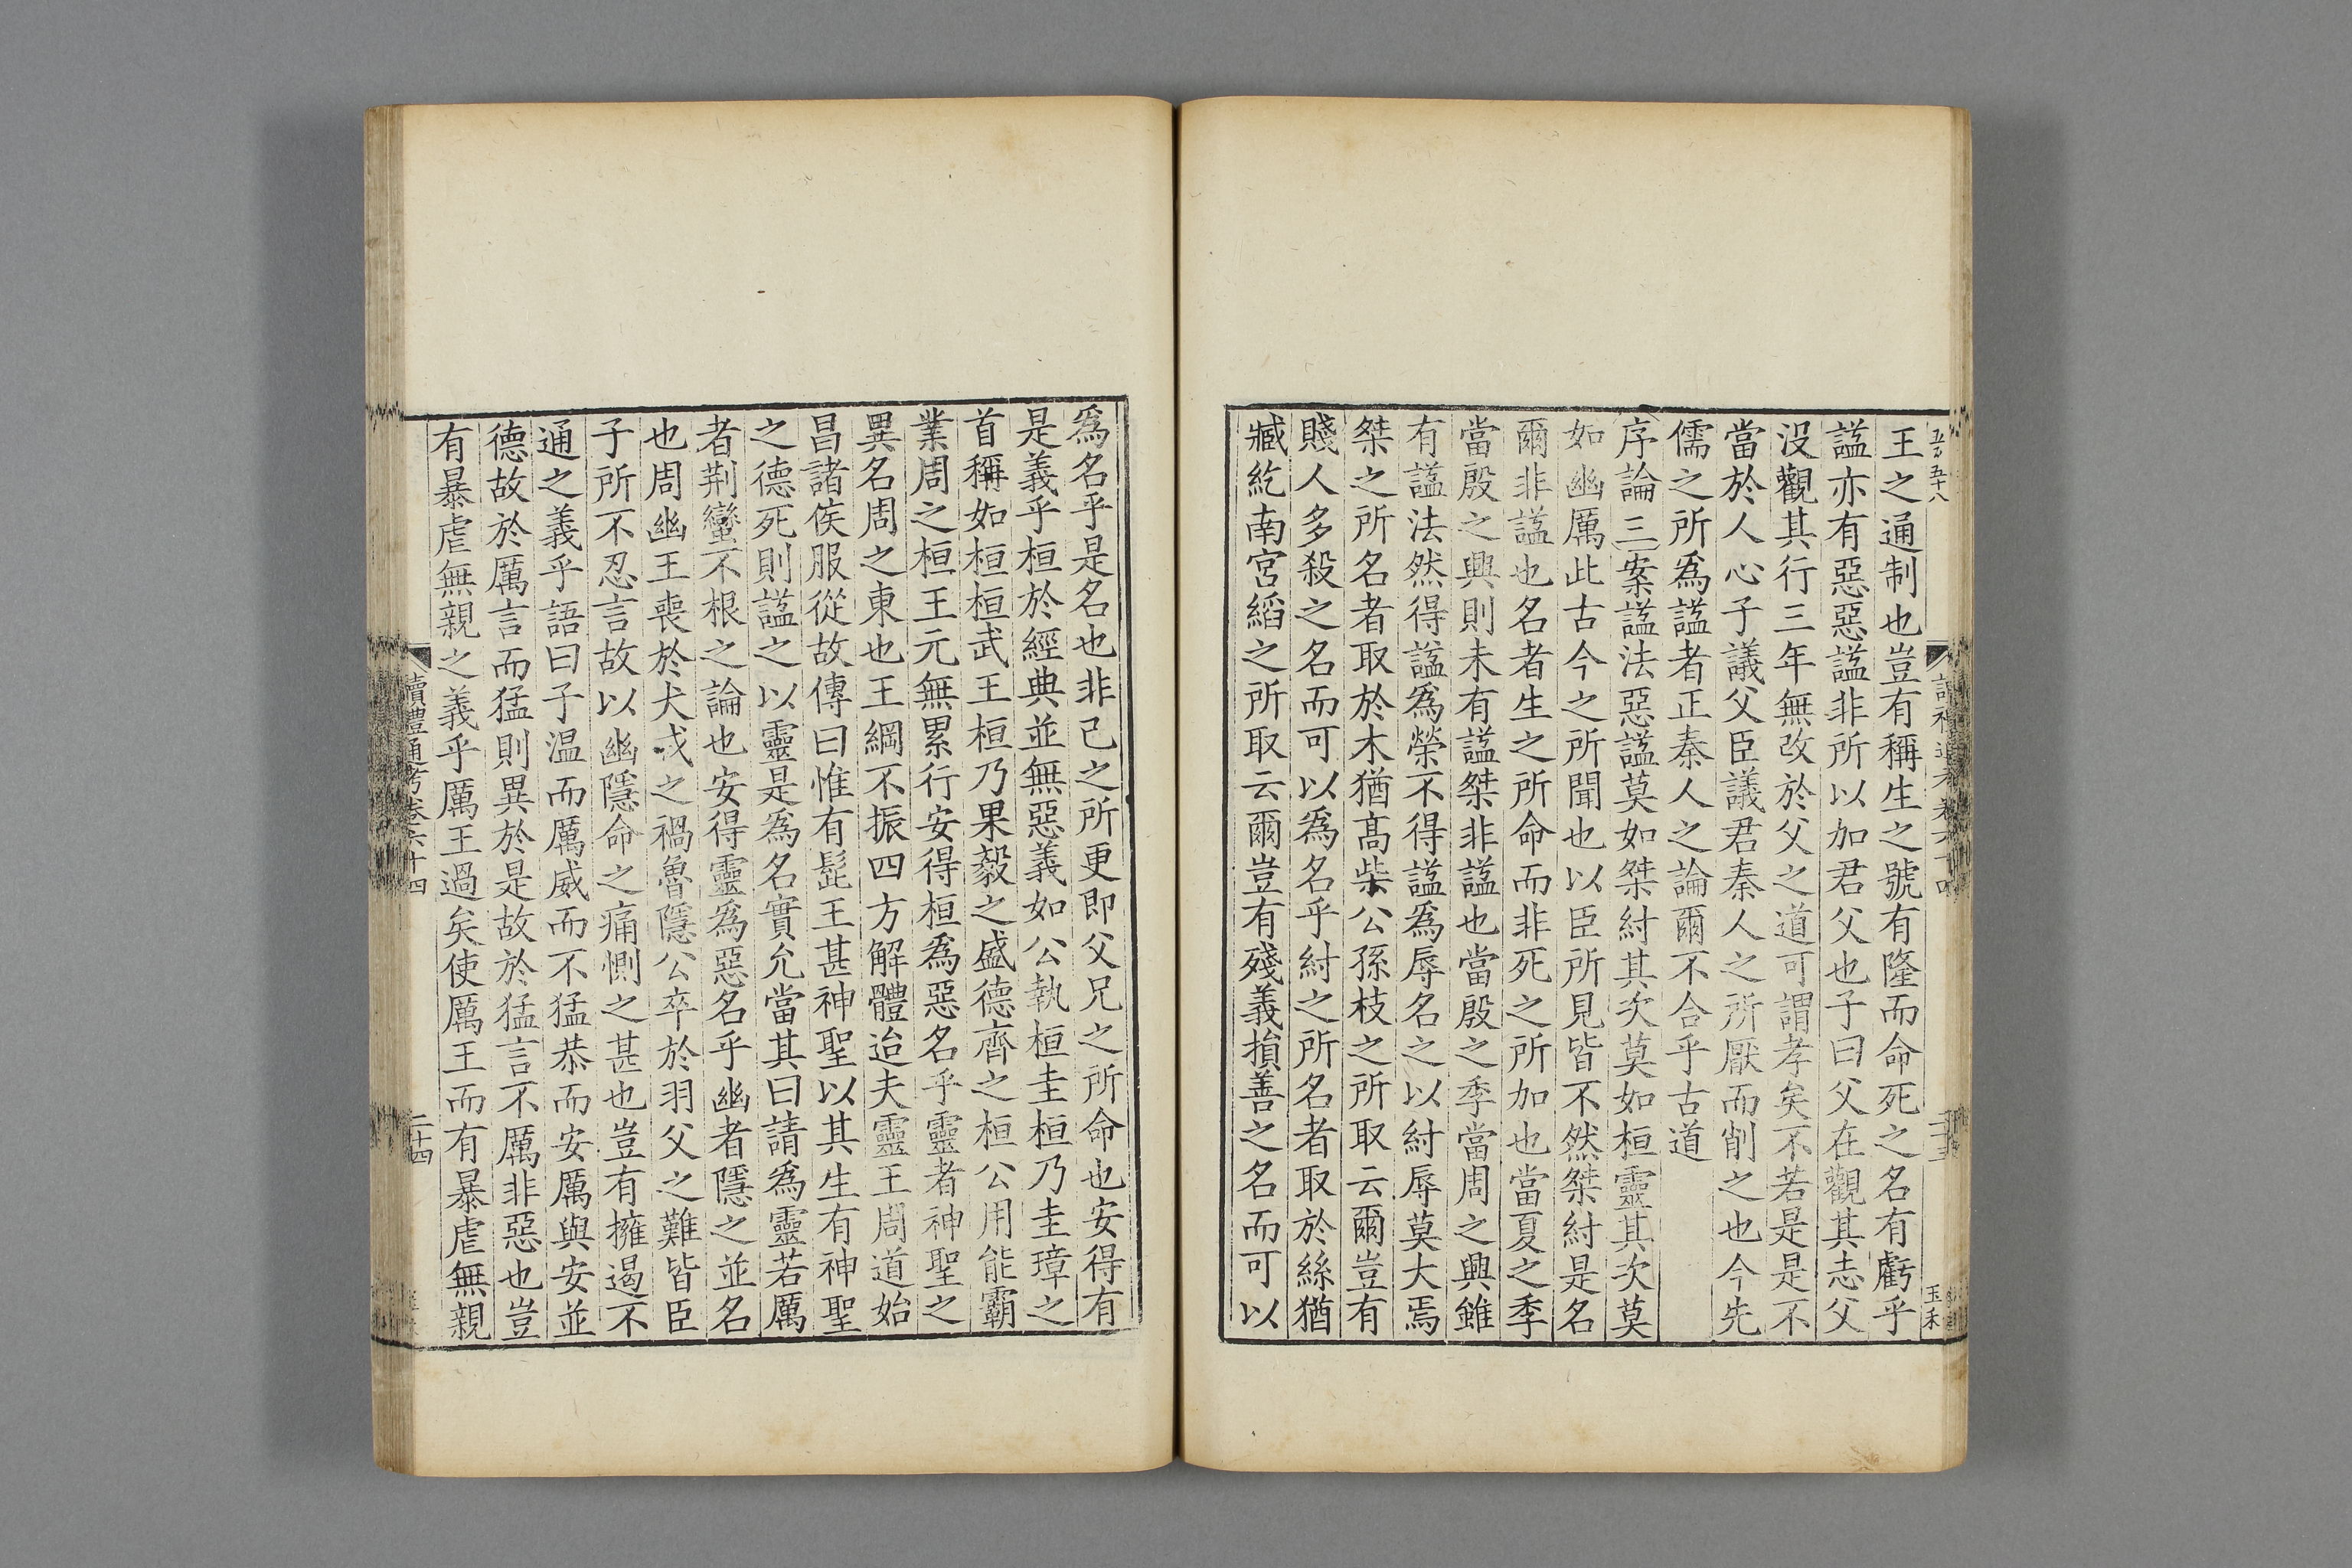 王之通制也豈有稱生之號有隆而命死之名有虧乎
諡亦有惡惡諡非所以加君父也子曰父在觀其志父
没觀其行三年無改於父之道可謂孝矣不若是是不
當於人心子議父臣議君秦人之所厭而削之也今先
儒之所爲諡者正秦人之論爾不合乎古道
序論三案諡法惡諡莫如桀紂其次莫如桓靈其次莫
如幽厲此古今之所聞也以臣所見皆不然桀紂是名
爾非諡也名者生之所命而非死之所加也當夏之季
當殷之興則未有諡桀非諡也當殷之季當周之興雖
有諡法然得諡爲榮不得諡爲辱名之以紂辱莫大焉
桀之所名者取於木猶高柴公孫枝之所取云爾豈有
賤人多殺之名而可以爲名乎紂之所名者取於絲猶
臧紇南宮縚之所取云爾豈有殘義損善之名而可以
爲名乎是名也非己之所更即父兄之所命也安得有
是義乎桓於經典並無惡義如公執桓圭桓乃圭璋之
首稱如桓桓武王桓乃果毅之盛德齊之桓公用能霸
業周之桓王元無累行安得桓爲惡名乎靈者神聖之
異名周之東也王綱不振四方解體迨夫靈王周道始
昌諸侯服從故傳曰惟有髭王甚神聖以其生有神聖
之德死則諡之以靈是爲名實允當其曰請爲靈若厲
者荆蠻不根之論也安得靈爲惡名乎幽者隱之並名
也周幽王喪於犬戎之禍魯隱公卒於羽父之難皆臣
子所不忍言故以幽隱命之痛惻之甚也豈有擁遏不
通之義乎語曰子温而厲威而不猛恭而安厲與安並
德故於厲言而猛則異於是故於猛言不厲非惡也豈
有暴虐無親之義乎厲王過矣使厲王而有暴虐無親
讀禮通考卷六十四
二十四